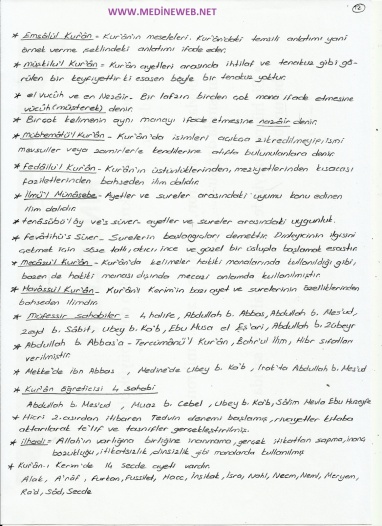 www.MEDİNEWEB.NET
* Emsâlül Kur'ân - Kur'ân'ın meseleleri. Kur'ân'daki temsili anlatımı yani
örnek verme şeklindeki anlatımı ifade eder.
* Müşkilu'l Kur'ân = Kur'ân ayetleri arasında ihtilaf ve tenakuz gibi gö-
rülen bir keyfiyettir ki esasen böyle bir tenakuz yoktur.
* el vücûh ve en Nezâir - Bir lafzın birden çok mana ifade etmesine
vücûh (müşterek) denir.
* Birçok kelimenin aynı manayı ifade etmesine nezâir denir.
* Mübhemâtü'l Kur'ân - Kur'ân'da isimleri açıkça zikredilmeyip, ismi
mevsuller veya zamirlerle kendilerine atıfta bulunulanlara denir.
* Fedâilu'l Kur'ân - Kur'ân'ın üstünlüklerinden, meziyetlerinden kısacası
faziletlerinden bahseden ilim dalıdır.
* İlmü'l Münâsebe - Ayetler ve sureler arasındaki uyumu konu edinen
ilim dalıdır.
* tenâsübü'l ây ve's süver - ayetler ve sureler arasındaki uygunluk.
* Fevâtihü's Süver - Surelerin başlangıçları demektir. Dinleyicinin ilgisini
çekmek için söze tatlı, akıcı, ince ve güzel bir üslupla başlamak esastır.
* Mecâzü'l Kur'ân - Kur'ân'da kelimeler hakiki manalarında kullanıldığı gibi,
bazen de hakiki manası dışında mecazi anlamda kullanılmıştır.
* Havâssu'l Kur'ân - Kur'ân'ı Kerim'in bazı ayet ve surelerinin özelliklerinden
bahseden ilimdir.
* Müfessir sahabiler = 4 halife, Abdullah b. Abbas, Abdullah b. Mes'ud,
Zeyd b. Sâbit, Ubey b. Ka'b, Ebu Musa el Eş'ari, Abdullah b. Zübeyr
* Abdullah b. Abbas'a - Tercümânü'l Kur'ân, Bahr'ul İlim, Hibr sıfatları
verilmiştir.
* Mekke'de ibn Abbas, Medine'de Ubey b. Ka'b, Irak'ta Abdullah b. Mes'ud
* Kur'ân öğreticisi 4 sahabi
Abdullah b. Mes'ud, Muaz b. Cebel, Ubey b. Ka'b, Sâlim Mevla Ebu Huzeyfe
* Hicri 2. asırdan itibaren Tedvin dönemi başlamış, rivayetler kitaba
aktarılarak te'lif ve tasnifler gerçekleştirilmiş.
* ilhad = Allah'ın varlığına birliğine inanmama, gerçek itikattan sapma, inanç
bozukluğu, itikatsızlık, dinsizlik gibi manalarda kullanılmış
* Kur'ân-ı Kerim'de 14 secde ayeti vardır.
Alak, A'râf, Furkan, Fussilet, Hacc, İnşikak, İsra, Nahl, Necm, Neml, Meryem,
Ra'd, Sâd, Secde